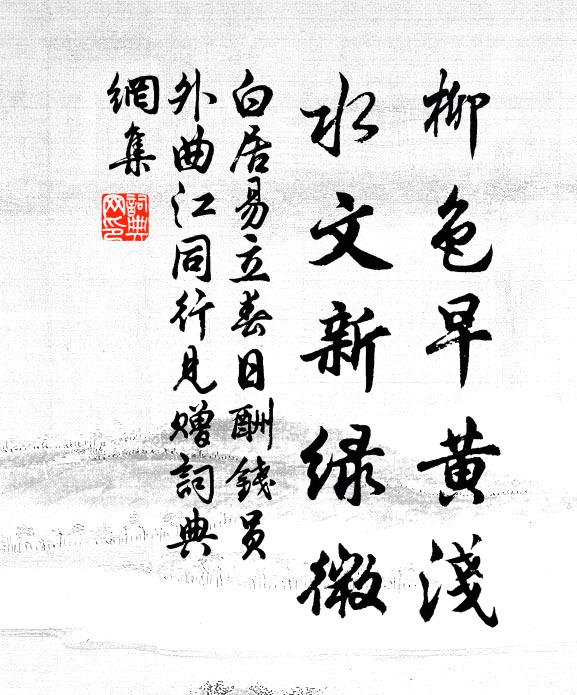 柳色早黄淺
水文新緑微
白居易立春日酬錢员
外曲江同行見贈詞典
網集
詞典
网印